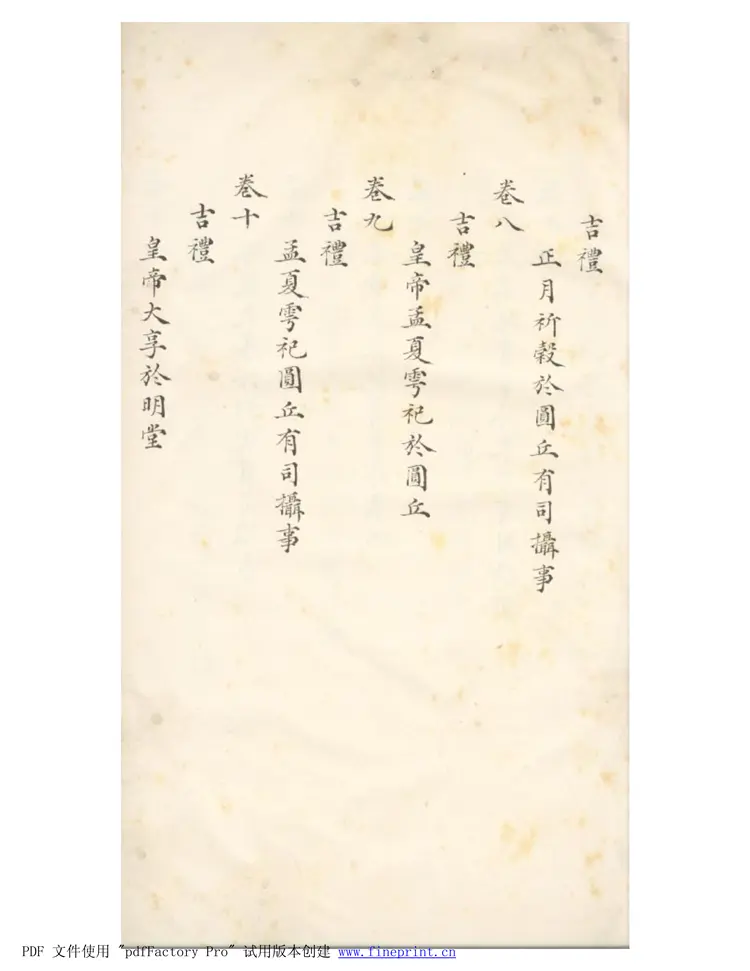 吉禮
正月祈穀於圓丘有司攝事
卷八
吉禮
皇帝孟夏雩祀於圓丘
卷九
吉禮
孟夏雩祀圓丘有司攝事
卷十
吉禮
皇帝大享於明堂
PDF 文件使用 "pdfFactory Pro" 试用版本创建 www.fineprint.cn